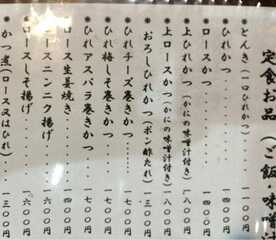 定食お品（ご飯 味噌汁
＊とんき（一口ひれかつ）・・・一〇〇〇円
＊ひれかつ・・・・一四〇〇円
＊ロースかつ・・・・一四〇〇円
＊上ひれかつ（かにの味噌汁付き）一八〇〇円
＊上ロースかつ（かにの味噌汁付き）一八〇〇円
＊おろしひれかつ（ポン酢たれ）一三〇〇円
＊ひれチーズ巻きかつ・・一七〇〇円
＊ひれ梅しそ巻きかつ・・一七〇〇円
＊ひれアスパラ巻きかつ・・一七〇〇円
＊ロース生姜焼き・・・一四〇〇円
ロースニンニク揚げ・・一六〇〇円
ロースしそ揚げ・・・一六〇〇円
＊かつ煮（ロース又はひれ）・・一三〇〇円